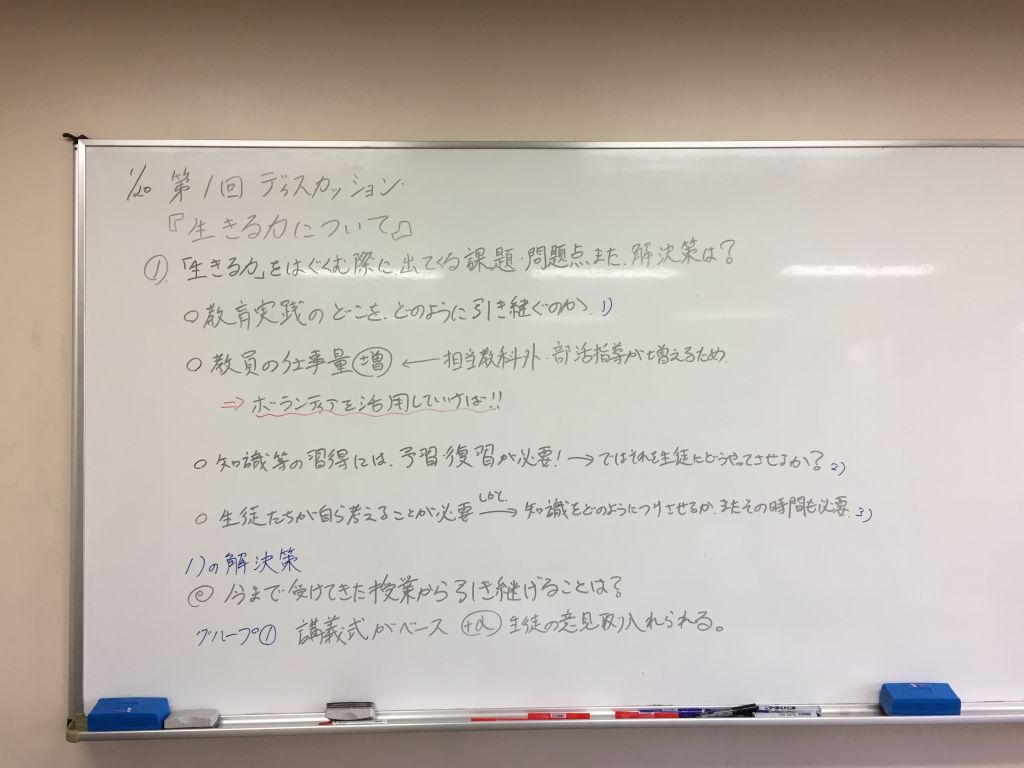 1/20 第1回 ディスカッション.
『生きる力について』
① 「生きる力」をはぐくむ際に出てくる課題・問題点、また、解決策は？
○ 教育実践のどこを、どのように引き継ぐのか、1)
○ 教員の仕事量 増 ← 担当教科外・部活指導が増えるため、
⇒ ボランティアを活用していけば!!
○ 知識等の習得には、予習・復習が必要! → ではそれを生徒にどうやってさせるか？2)
○ 生徒たちが自ら考えることが必要 しかし → 知識をどのようにつけさせるか、またその時間も必要、3)
1)の解決策
@ 今まで受けてきた授業から引き継げることは？
グループ① 講義式がベース +α 生徒の意見取り入れられる。